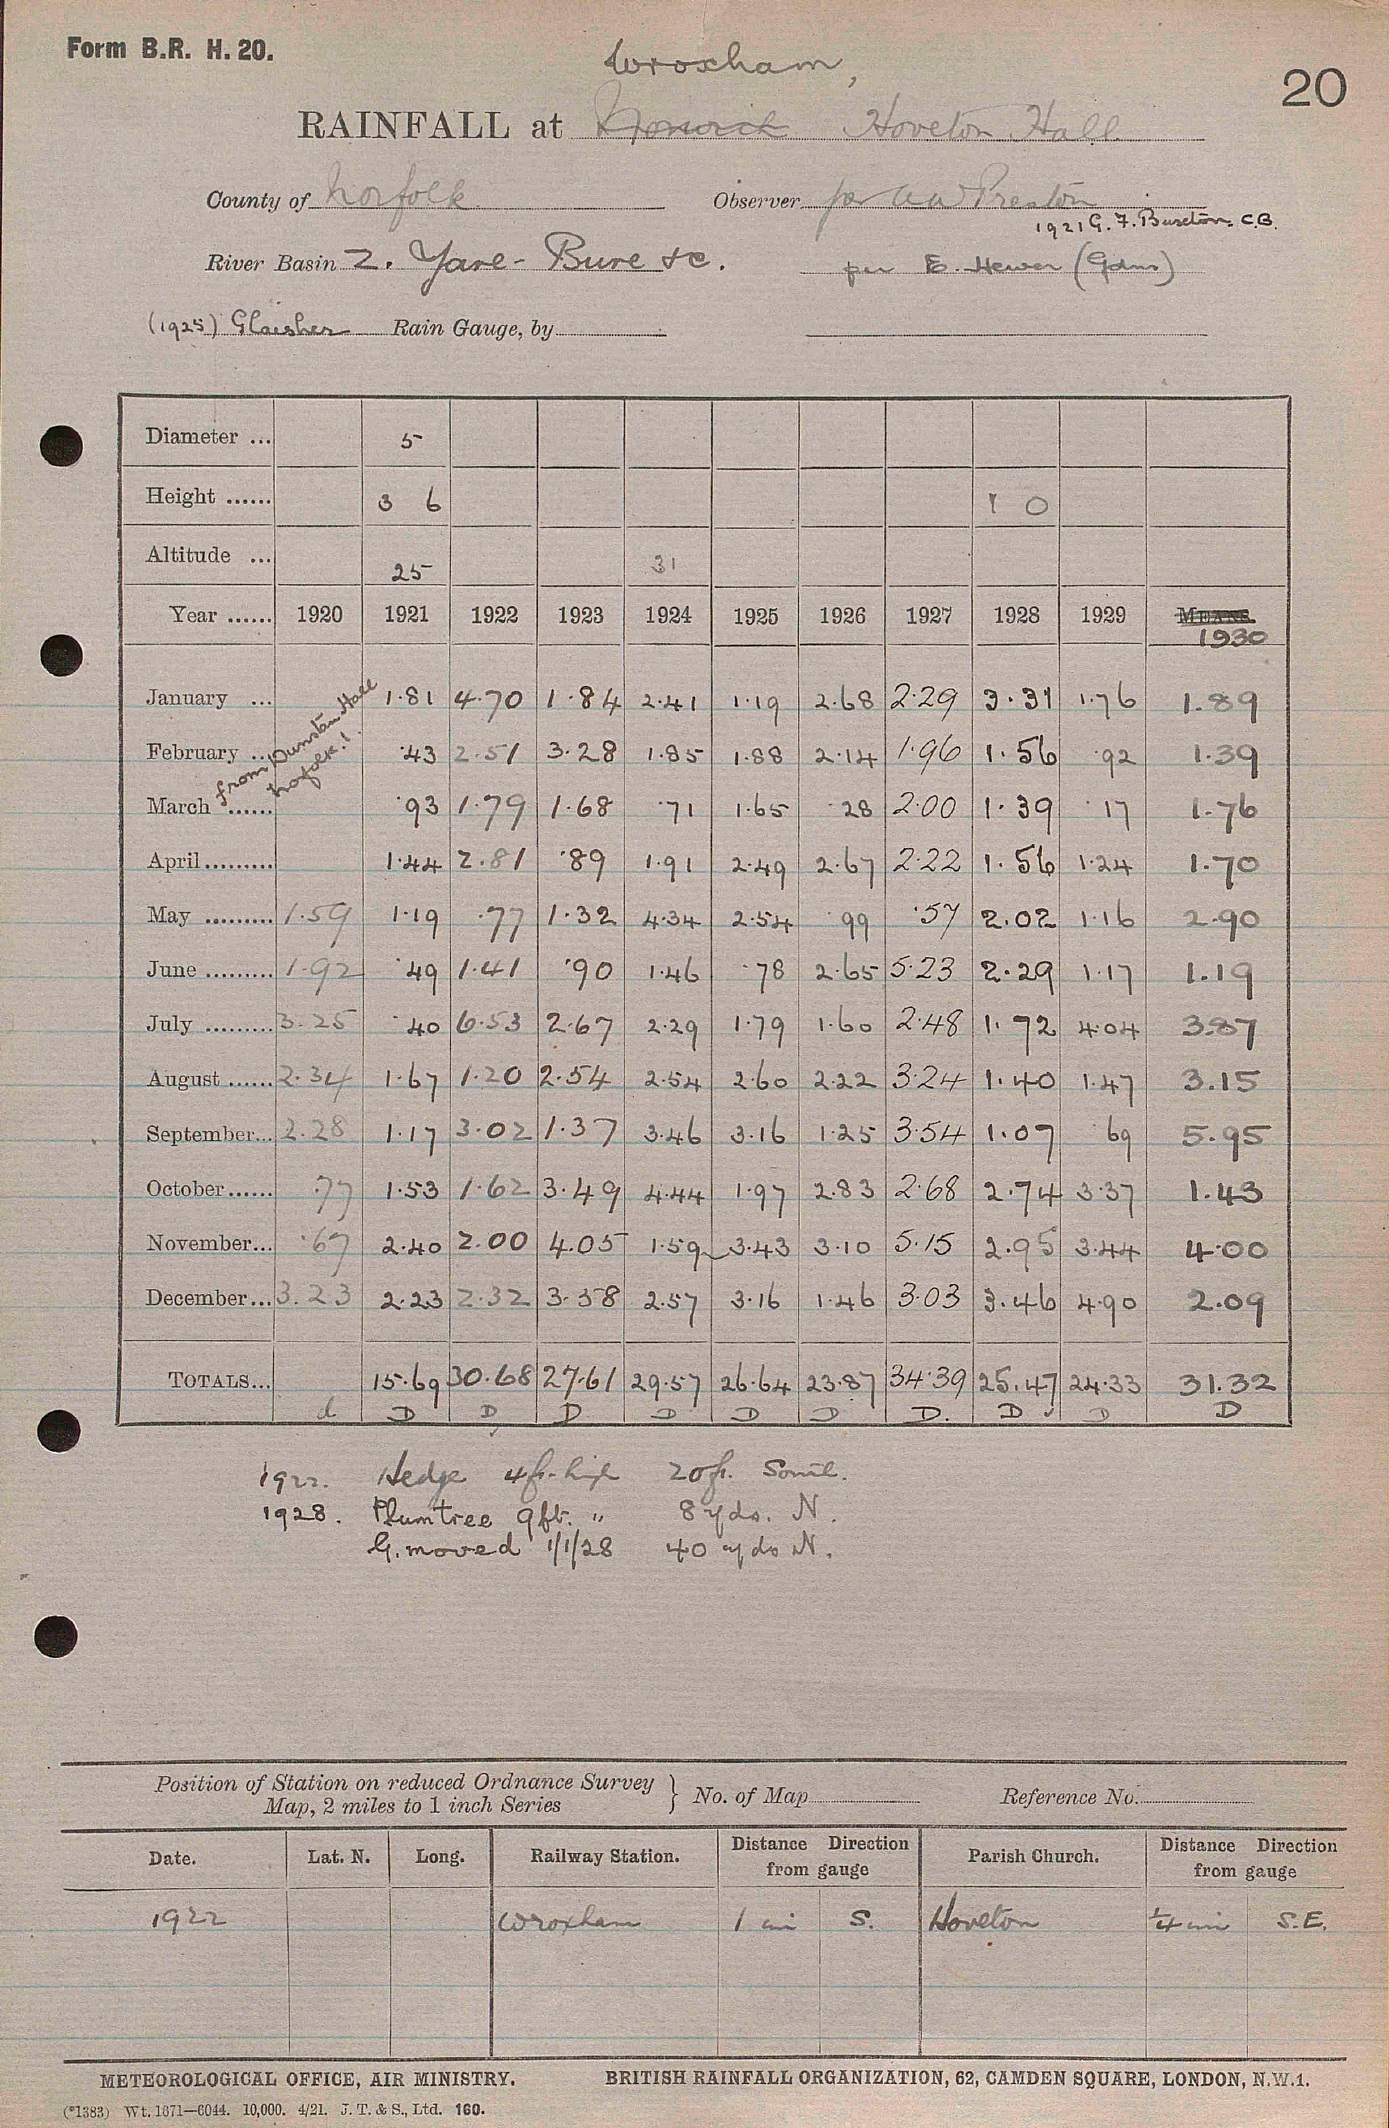 Form B.R. H. 20.
Wroxham,
20
RAINFALL at Norwich Hoveton Hall
County of Norfolk Observer per AW Preston
1921 G. F. Buxton. C.B.
River Basin 2. Yare - Bure &c. per E. Hewer (Gdnr)
(1925) Glaisher Rain Gauge, by
Diameter ... 5
Height ...... 3 6 1 0
Altitude ... 25 31
Year ...... 1920 1921 1922 1923 1924 1925 1926 1927 1928 1929 MEANS.
1930
from Dunston Hall
Norfolk!.
January ... 1.81 4.70 1.84 2.41 1.19 2.68 2.29 3.31 1.76 1.89
February ... .43 2.51 3.28 1.85 1.88 2.14 1.96 1.56 .92 1.39
March ...... .93 1.79 1.68 .71 1.65 .28 2.00 1.39 .17 1.76
April ......... 1.44 2.81 .89 1.91 2.49 2.67 2.22 1.56 1.24 1.70
May ......... 1.59 1.19 .77 1.32 4.34 2.54 .99 .57 2.02 1.16 2.90
June ......... 1.92 .49 1.41 .90 1.46 .78 2.65 5.23 2.29 1.17 1.19
July ......... 3.25 .40 6.53 2.67 2.29 1.79 1.60 2.48 1.72 4.04 3.87
August ...... 2.34 1.67 1.20 2.54 2.54 2.60 2.22 3.24 1.40 1.47 3.15
September... 2.28 1.17 3.02 1.37 3.46 3.16 1.25 3.54 1.07 .69 5.95
October...... .77 1.53 1.62 3.49 4.44 1.97 2.83 2.68 2.74 3.37 1.43
November... .67 2.40 2.00 4.05 1.59 3.43 3.10 5.15 2.95 3.44 4.00
December... 3.23 2.23 2.32 3.58 2.57 3.16 1.46 3.03 3.46 4.90 2.09
TOTALS... 15.69 30.68 27.61 29.57 26.64 23.87 34.39 25.47 24.33 31.32
d D D D D D D D. D ✓ D D
1922. Hedge 4ft. high 20ft.
1928. Plumtree 9ft. " 8 yds. N.
G. moved 1/1/28 40 yds N.
Position of Station on reduced Ordnance Survey
Map, 2 miles to 1 inch Series } No. of Map Reference No.
Date. Lat. N. Long. Railway Station. Distance Direction from gauge Parish Church. Distance Direction from gauge
1922 Wroxham 1 mi S. Hoveton 1/4 mi S.E.
METEOROLOGICAL OFFICE, AIR MINISTRY. BRITISH RAINFALL ORGANIZATION, 62, CAMDEN SQUARE, LONDON, N.W.1.
(*1383) Wt. 1871—6044. 10,000. 4/21. J. T. & S., Ltd. 160.